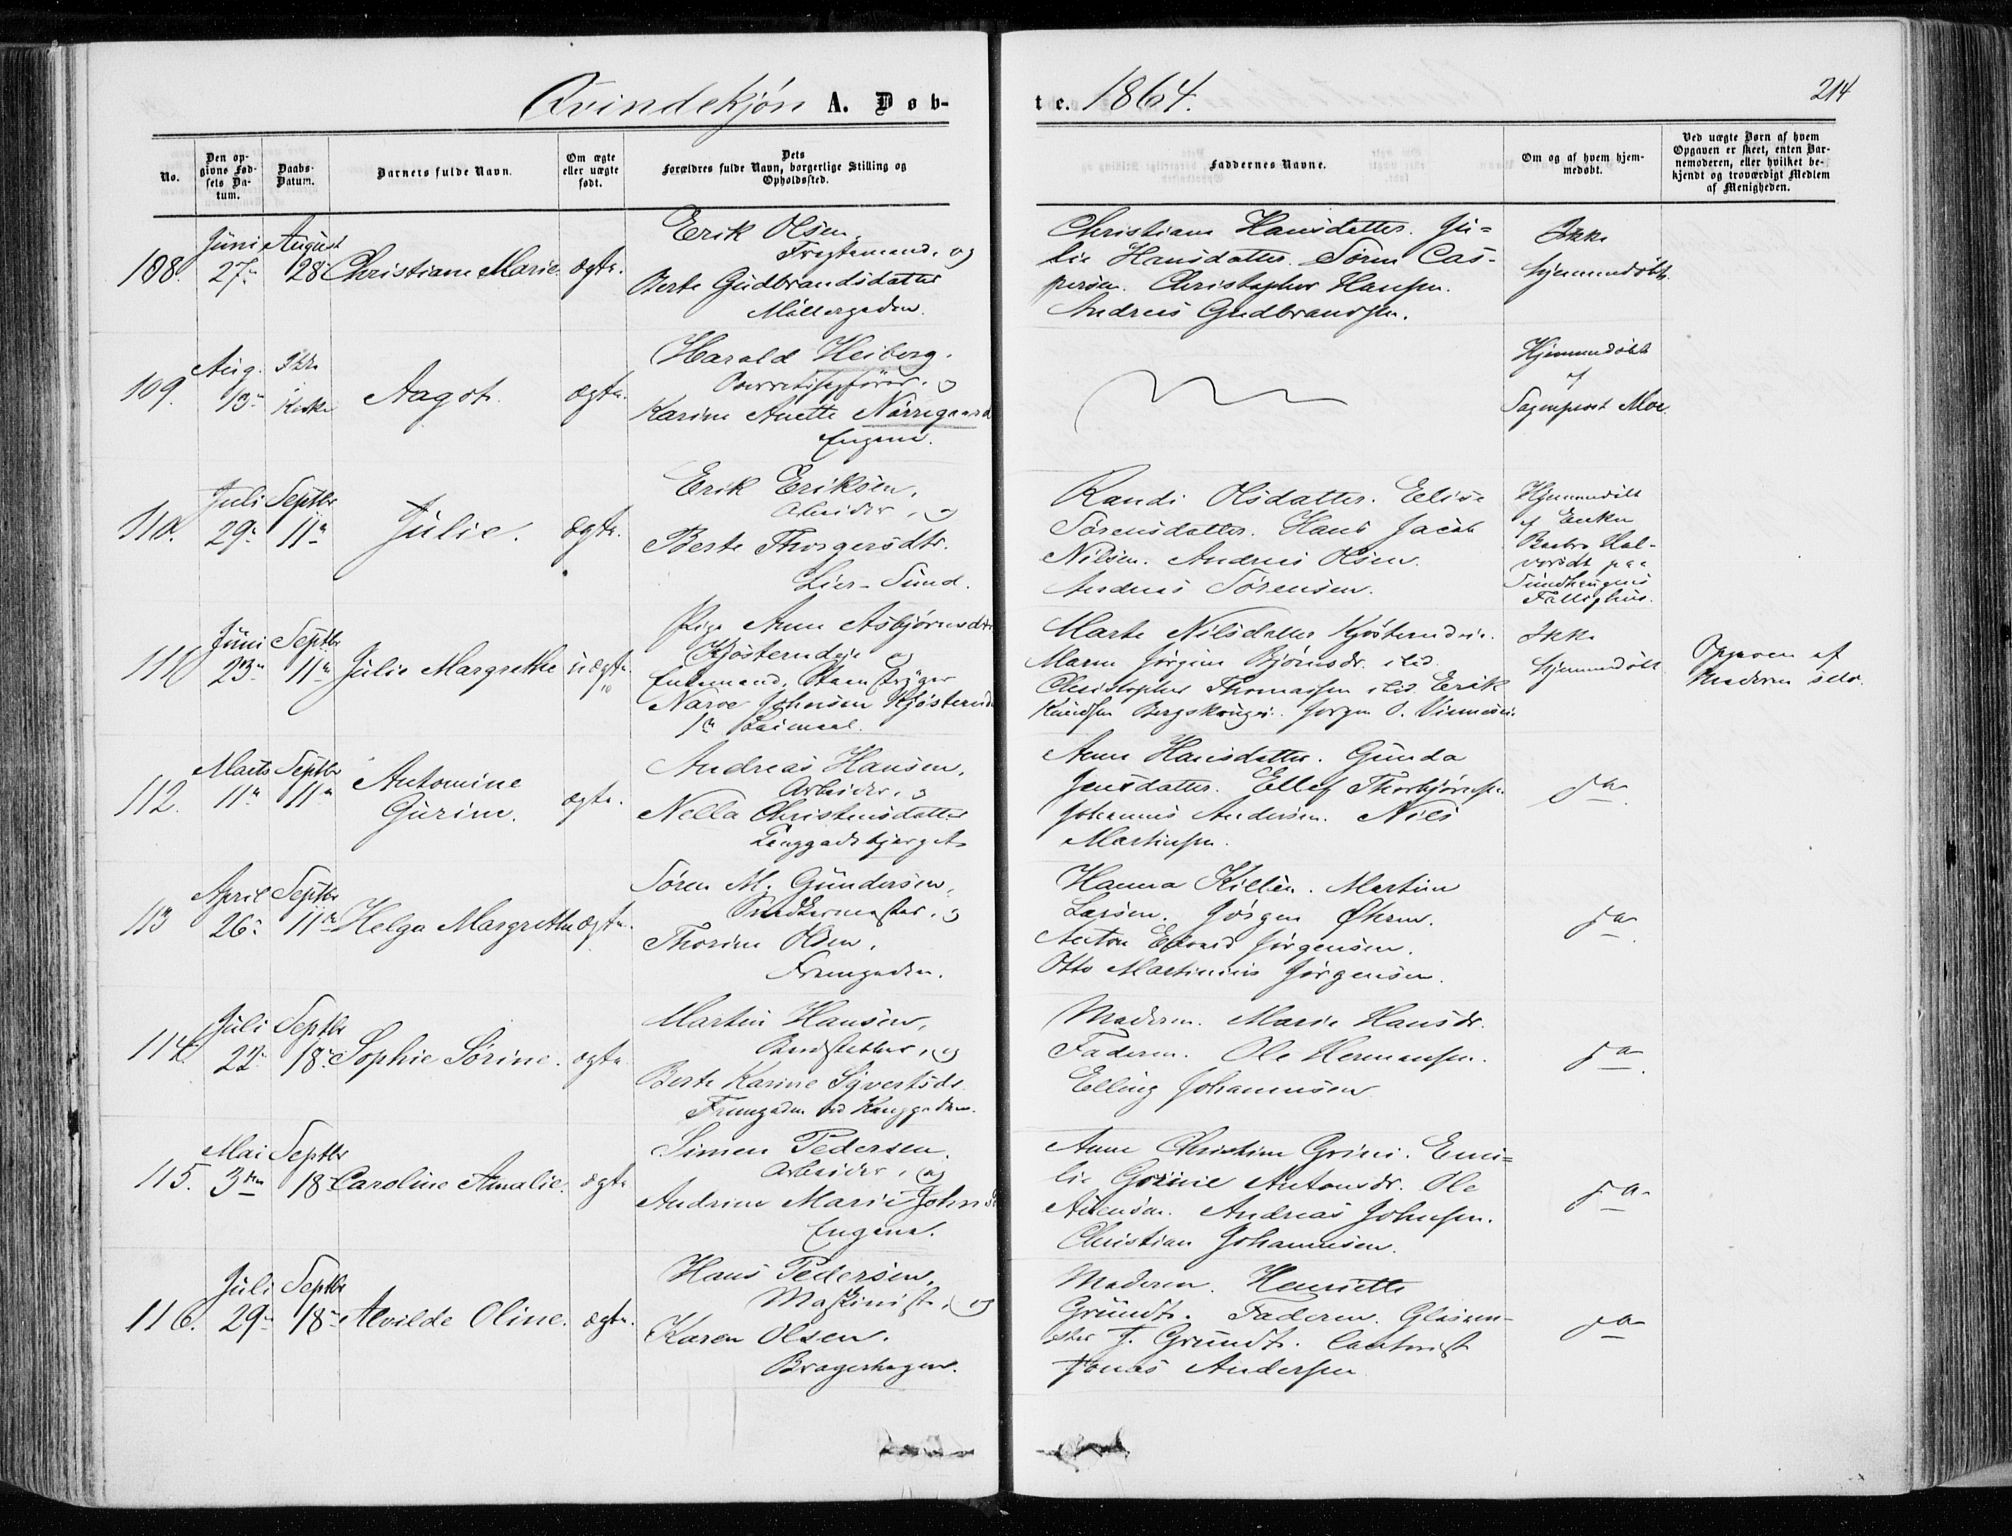 Qvindekjøn A. Døb-
te. 1864.
214
No.
Den op-
givne Fød-
sels Da-
tum.
Daabs-
Datum.
Barnets fulde Navn.
Om ægte
eller uægte
født.
Dets
Forældres fulde Navn, borgerlige Stilling og
Opholdssted.
Faddernes Navne.
Om og af hvem hjem-
medøbt.
Ved uægte Børn af hvem
Opgaven er skeet, enten Bar-
nemoderen, eller hvilket be-
kjendt og troværdigt Medlem
af Menigheden.
108.
Juni
27.
August
28
Christiane Marie
ægte.
Erik Olsen,
Fragtemand, og
Berte Gudbrandsdatter
Møllergaden.
Christiane Hansdatter. Ju-
lie Hansdatter. Søren Cas-
persen. Christopher Hansen.
Andreas Gudbrandsen.
Ikke
hjemmedøbt.
109.
Aug.
13
Ikke
Kirke
Aagot
ægte.
Harald Heiberg.
Overretssagfører, og
Karine Anette Nørregaard
Engene.
Hjemmedøbt
af
Sogneprest Moe
110.
Juli
29
Septbr
11
Julie.
ægte.
Erik Eriksen,
Arbeider, og
Berte Thorgersdtr.
Lier-Sund.
Randi Olsdatter. Elise
Sørensdatter. Hans Jacob
Nilsen. Andreas Olsen.
Andreas Sørensen.
Hjemmedøbt
af Enken
Barbro Hal-
vorsdt paa
Sundhaugens
Fattighus.
111
Juni
23
Septbr
11
Julie Margrethe
uægte
Pige Anne Asbjørnsdtr
Kjøsterudeie og
Enkemand, Skomstryger
Narve Johnsen Kjøsterud
1ste Leiermaal.
Marte Nilsdatter Kjøsterudeie.
Maren Jørgine Bjørnsdr. ibid.
Christopher Thomassen ibid. Erik
Knudsen Bergskauger. Jørgen O.
Ikke
hjemmedøbt
Opgaven af
Moderen selv.
112.
Marts
11
Septbr
11
Antomine
Gurine.
ægte.
Andreas Hansen,
Arbeider, og
Nella Christensdatter
Anne Hansdatter. Gunda
Jensdatter. Ellef Thorbjørnsen
Johannes Andersen. Nils
Martinsen.
do
113
April
26
Septbr
11
Helga Margrethe
ægte.
Søren M. Gundersen,
Snedkermester, og
Thorine Olsen,
Frengaden.
Hanna Killén. Martine
Larsen. Jørgen Øhren.
Anton Edvard Jørgensen.
Otto Martinius Jørgensen.
do
114
Juli
22
Septbr
18
Sophie Sørine.
ægte
Martin Hansen,
Bundtsætter, og
Berte Karine Syvertsdr.
Moderen. Marie Hansdr.
Faderen. Ole Hermansen.
Elling Johannesen
do
115.
Mai
3
Septbr
18
Caroline Amalie.
ægte
Simen Pedersen.
Arbeider, og
Andrine Marie Johnsd
Engene.
Anne Christine Grini. Emi-
lie Gurine Antonsdr. Ole
Andreas Johnsen.
Christian Johannesen.
do
116.
Juli
29
Septbr
18
Alvilde Oline.
ægte.
Hans Pedersen,
Maskinist, og
Karen Olsen.
Bragerhagen.
Moderen. Henriette
Grundt. Faderen. Glasme-
ster J. Grundt. Contorist
Jonas Andersen
do